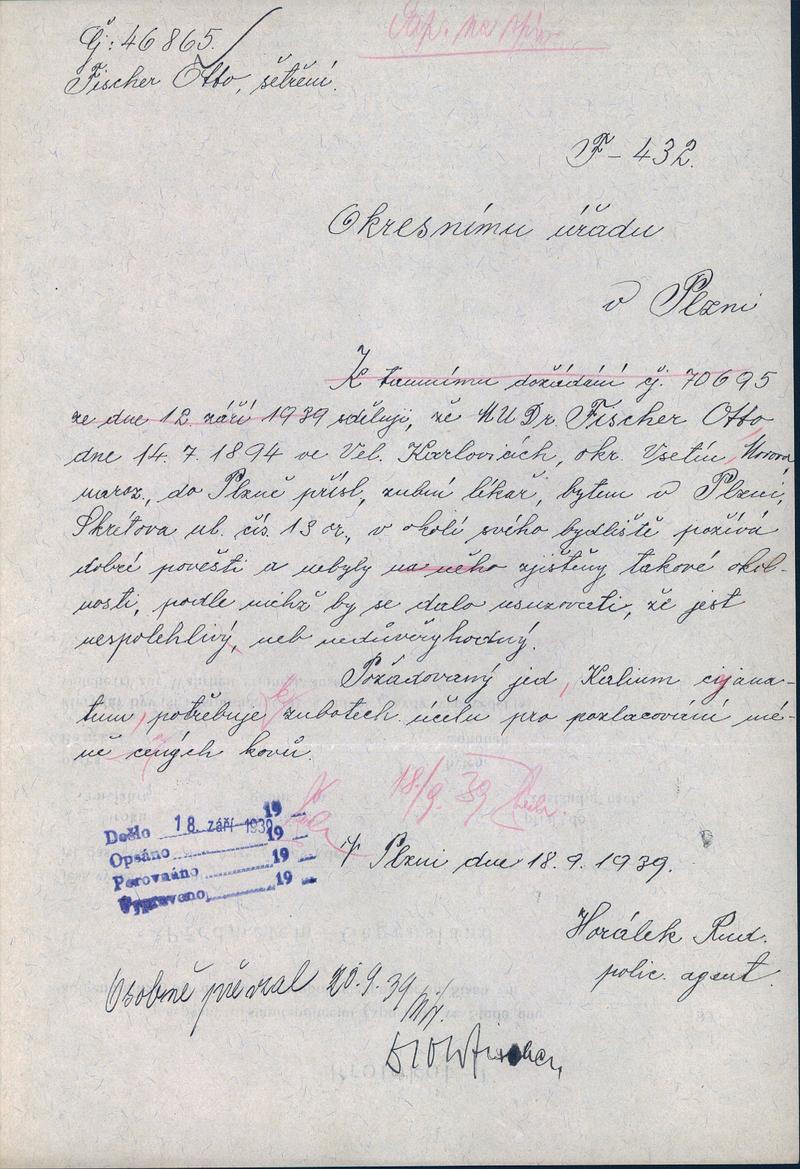 Čj: 46865.
Fischer Otto, šetření.
F - 432.
Okresnímu úřadu
v Plzni
K tamnímu dožádání čj. 70695
ze dne 12. září 1939 sděluji, že MUDr. Fischer Otto
dne 14. 7. 1894 ve Vel. Karlovicích, okr. Vsetín, Morava
naroz., do Plzně přísl., zubní lékař, bytem v Plzni,
Škrétova ul. čís. 13 or., v okolí svého bydliště požívá
dobré pověsti a nebyly na něho zjištěny takové okol-
nosti, podle nichž by se dalo usuzovati, že jest
nespolehlivý, neb nedůvěryhodný.
Požadovaný jed, Kalium cijana-
tum, potřebuje k zubotech. účelu pro pozlacování mé-
ně cených kovů.
18./9. 39
Došlo 18. září 1939 19
Opsáno 19
Porovnáno 19
Vypraveno 19
V Plzni dne 18. 9. 1939.
Horálek Rud.
polic. agent.
Osobně převzal 20.9.39